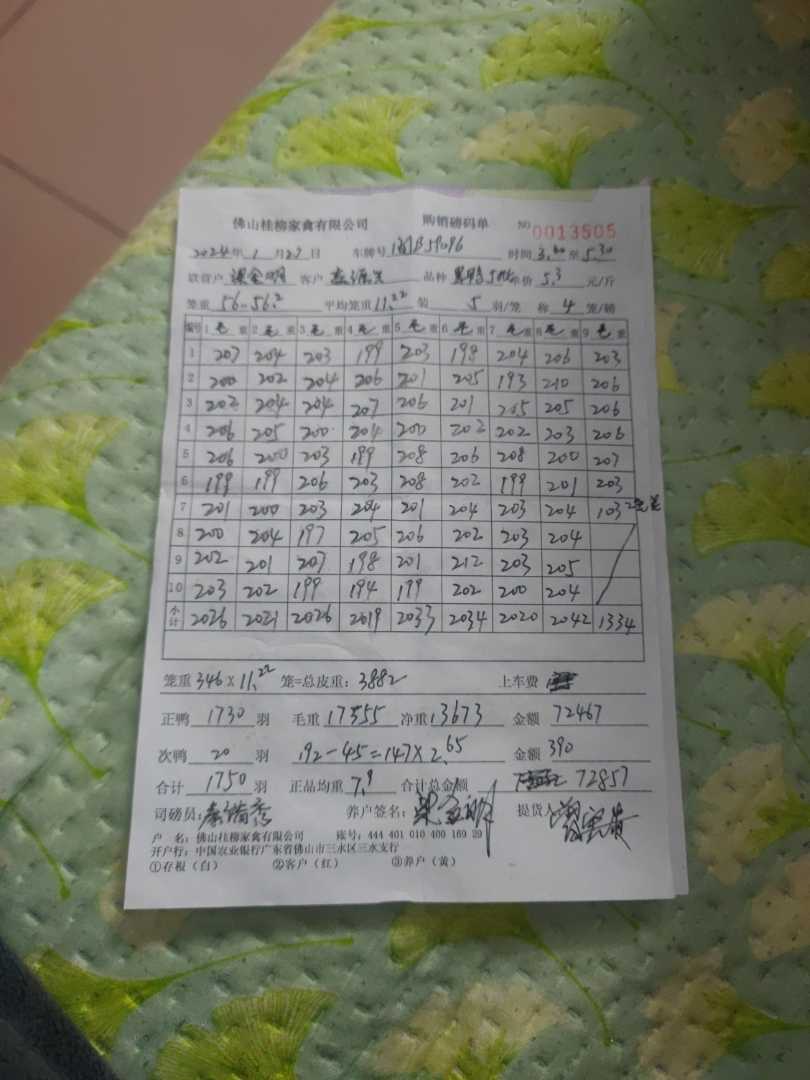 佛山桂柳家禽有限公司 购销磅码单 NO 0013505
2024年1月27日 车牌号 时间3.00至5.30
放管户 客户 品种 单价5.3元/斤
笼重56-56.2 平均笼重11.22 装5羽/笼 称4笼/磅
编号 1毛重 2毛重 3毛重 4毛重 5毛重 6毛重 7毛重 8毛重 9毛重
1 207 204 203 199 203 198 204 206 203
2 200 202 204 206 201 205 193 210 206
3 202 204 204 207 206 201 205 205 206
4 206 205 200 204 200 202 202 203 206
5 206 200 203 199 208 206 208 200 207
6 199 199 206 203 208 202 199 201 203
7 201 200 203 204 201 204 203 204 103 2笼
8 200 204 197 205 206 202 203 204
9 202 201 207 198 201 212 203 205
10 203 202 199 194 199 202 200 204
小计 2026 2021 2026 2019 2033 2034 2020 2042 1334
笼重346×11.22笼=总皮重:3882 上车费
正鸭1730羽 毛重17555净重13673 金额72467
次鸭20羽 192-45=147×2.65 金额390
合计1750羽 正品均重7.9 合计总金额 72857
司磅员: 养户签名: 提货人
户 名:佛山桂柳家禽有限公司 账号:444 401 010 400 169 29
开户行:中国农业银行广东省佛山市三水区三水支行
①存根(白) ②客户(红) ③养户(黄)